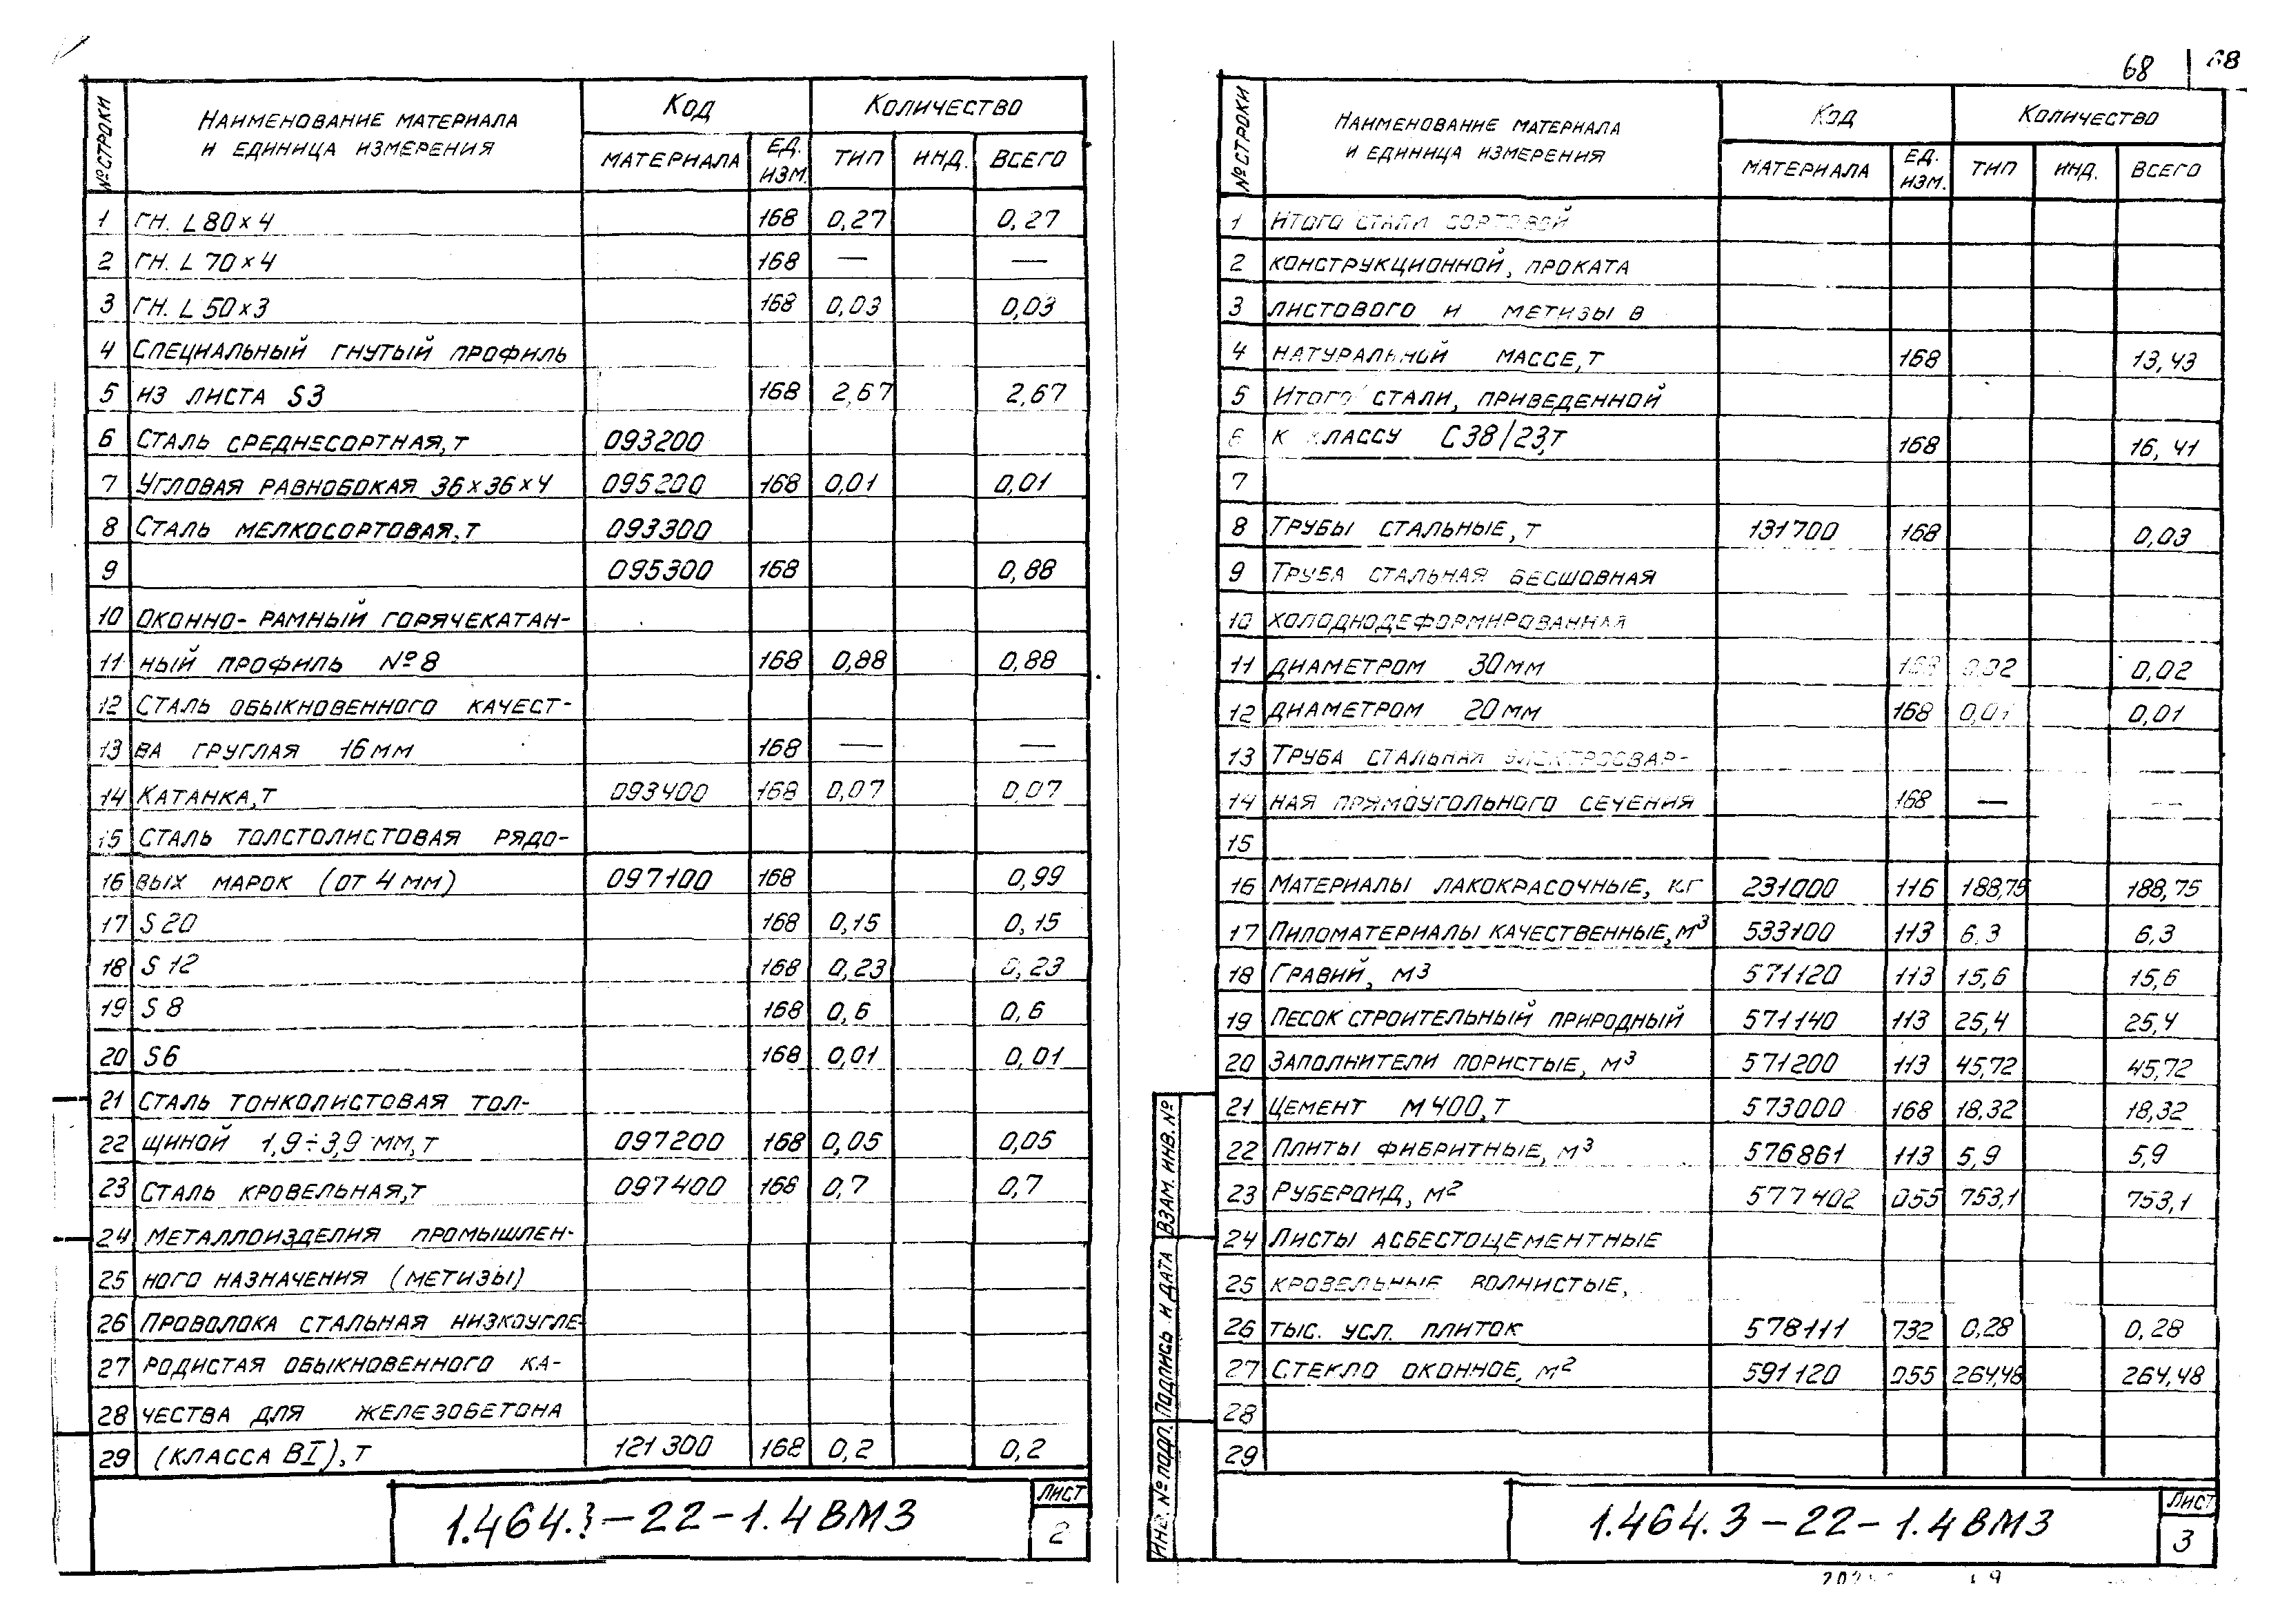 № строки
Наименование материала
и единица измерения
Код
Количество
материала
ед.
изм.
тип
инд.
всего
1 гн. L 80×4 168 0,27 0,27
2 гн. L 70×4 168 — —
3 гн. L 50×3 168 0,03 0,03
4 Специальный гнутый профиль
5 из листа S3 168 2,67 2,67
6 Сталь среднесортная, т 093200
7 Угловая равнобокая 36×36×4 095200 168 0,01 0,01
8 Сталь мелкосортовая, т 093300
9 095300 168 0,88
10 оконно-рамный горячекатан-
11 ный профиль №8 168 0,88 0,88
12 Сталь обыкновенного качест-
13 ва груглая 16 мм 168 — —
14 Катанка, т 093400 168 0,07 0,07
15 Сталь толстолистовая рядо-
16 вых марок (от 4 мм) 097100 168 0,99
17 S 20 168 0,15 0,15
18 S 12 168 0,23 0,23
19 S 8 168 0,6 0,6
20 S6 168 0,01 0,01
21 Сталь тонколистовая тол-
22 щиной 1,9÷3,9 мм, т 097200 168 0,05 0,05
23 Сталь кровельная, т 097400 168 0,7 0,7
24 Металлоизделия промышлен-
25 ного назначения (метизы)
26 Проволока стальная низкоугле-
27 родистая обыкновенного ка-
28 чества для железобетона
29 (класса BI), т 121300 168 0,2 0,2
1.464.3-22-1.4 ВМ3
Лист
2
68 68
№ строки
Наименование материала
и единица измерения
Код
Количество
материала
ед.
изм.
тип
инд.
всего
1 Итого стали сортовой
2 конструкционной, проката
3 листового и метизы в
4 натуральной массе, т 168 13,43
5 Итого стали, приведенной
6 к классу С38/23, т 168 16,41
7
8 Трубы стальные, т 131700 168 0,03
9 Труба стальная бесшовная
10 холоднодеформированная
11 диаметром 30 мм 168 0,02 0,02
12 диаметром 20 мм 168 0,01 0,01
13 Труба стальная электросвар-
14 ная прямоугольного сечения 168 — —
15
16 Материалы лакокрасочные, кг 231000 116 188,75 188,75
17 Пиломатериалы качественные, м³ 533100 113 6,3 6,3
18 Гравий, м3 571120 113 15,6 15,6
19 Песок строительный природный 571140 113 25,4 25,4
20 Заполнители пористые, м³ 571200 113 45,72 45,72
21 Цемент М400, т 573000 168 18,32 18,32
22 Плиты фибритные, м³ 576861 113 5,9 5,9
23 Рубероид, м² 577402 055 753,1 753,1
24 Листы асбестоцементные
25 кровельные волнистые,
26 тыс. усл. плиток 578111 732 0,28 0,28
27 Стекло оконное, м² 591120 055 264,48 264,48
28
29
Инв. № подл.
Подпись и дата
Взам. инв. №
1.464.3-22-1.4 ВМ3
Лист
3